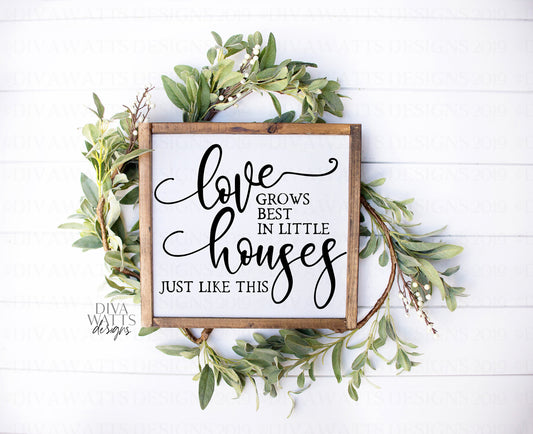 ©DIVAWATTS DESIGNS 2019
love
GROWS
BEST
IN LITTLE
houses
JUST LIKE THIS
DIVA
WATTS
designs